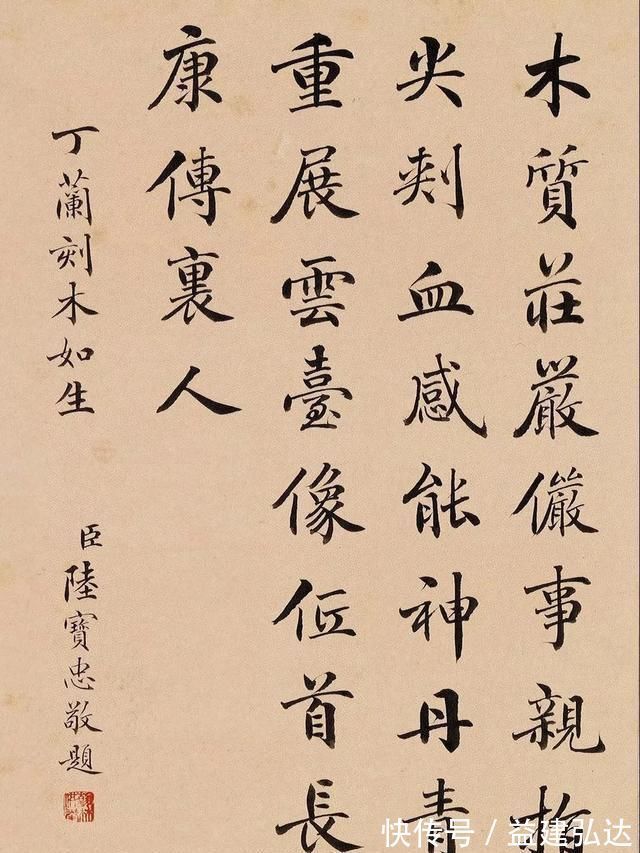 木質莊嚴儼事親指
尖刾血感能神丹青
重展雲臺像低首長
康傳裏人
丁蘭刻木如生
臣陸寶忠敬題
快传号 / 益建弘达